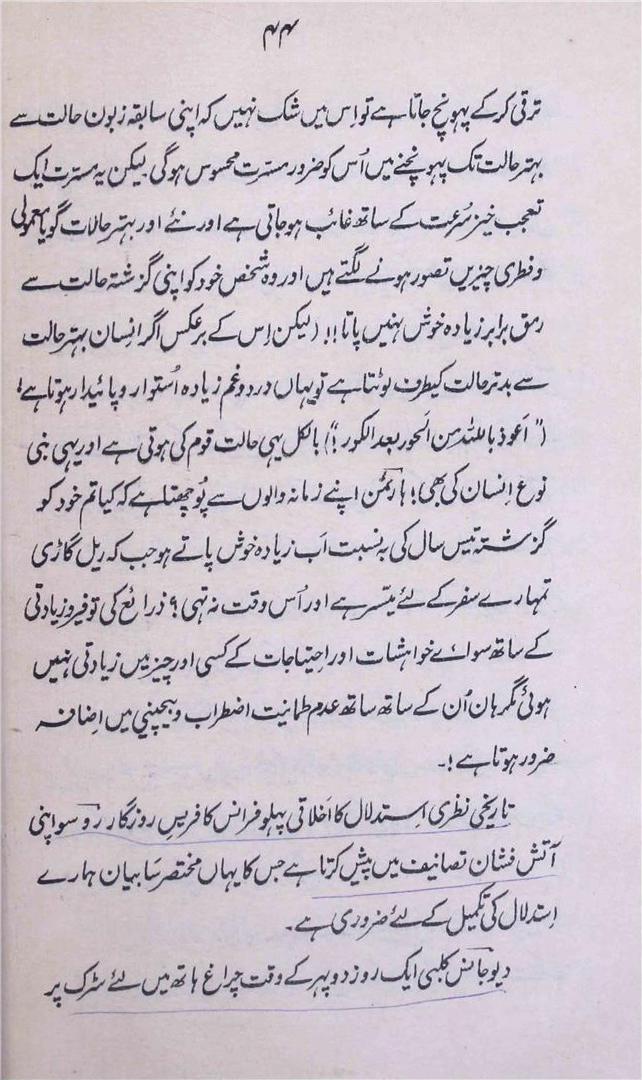 ۴۴
ترقی کر کے پہونچ جاتا ہے تو اِس میں شک نہیں کہ اپنی سابقہ زبون حالت سے
بہتر حالت تک پہونچنے میں اُس کو ضرور مسرّت محسوس ہوگی۔ لیکن یہ مسرّت ایک
تعجب خیز سُرعت کے ساتھ غائب ہوجاتی ہے اور نئے اور بہتر حالات گویا معمولی
و فطری چیزیں تصور ہونے لگتے ہیں اور وہ شخص خود کو اپنی گزشتہ حالت سے
رمق برابر زیادہ خوش نہیں پاتا!! (لیکن اِس کے برعکس اگر اِنسان بہتر حالت
سے بدتر حالت کیطرف لوٹتا ہے تو یہاں درد و غم زیادہ اُستوار و پائیدار ہوتا ہے!
("اَعوذ باللہ مِن الحَور بعد الکور!") بالکل یہی حالت قوم کی ہوتی ہے اور یہی بنی
نوع اِنسان کی بھی! ہارٹمن اپنے زمانہ والوں سے پُوچھتا ہے کہ کیا تم خود کو
گزشتہ تیس سال کی بہ نسبت اَب زیادہ خوش پاتے ہو جب کہ ریل گاڑی
تمہارے سفر کے لئے میسّر ہے اور اُس وقت نہ تہی؟ ذرائع کی توفیر و زیادتی
کے ساتھ سوائے خواہشات اور اِحتیاجات کے کسی اور چیز میں زیادتی نہیں
ہوئی مگر ہان اُن کے ساتھ ساتھ عدم طمانیت اضطراب و بیچینی میں اِضافہ
ضرور ہوتا ہے!۔
تاریخی نظری اِستدلال کا اَخلاقی پہلو فرانس کا فریسِ روزگار رُوسو اپنی
آتش فشان تصانیف میں پیش کرتا ہے جس کا یہاں مختصر سا بیان ہمارے
اِستدلال کی تکمیل کے لئے ضروری ہے۔
دیوجانس کلبی ایک روز دوپہر کے وقت چراغ ہاتھ میں لئے سڑک پر